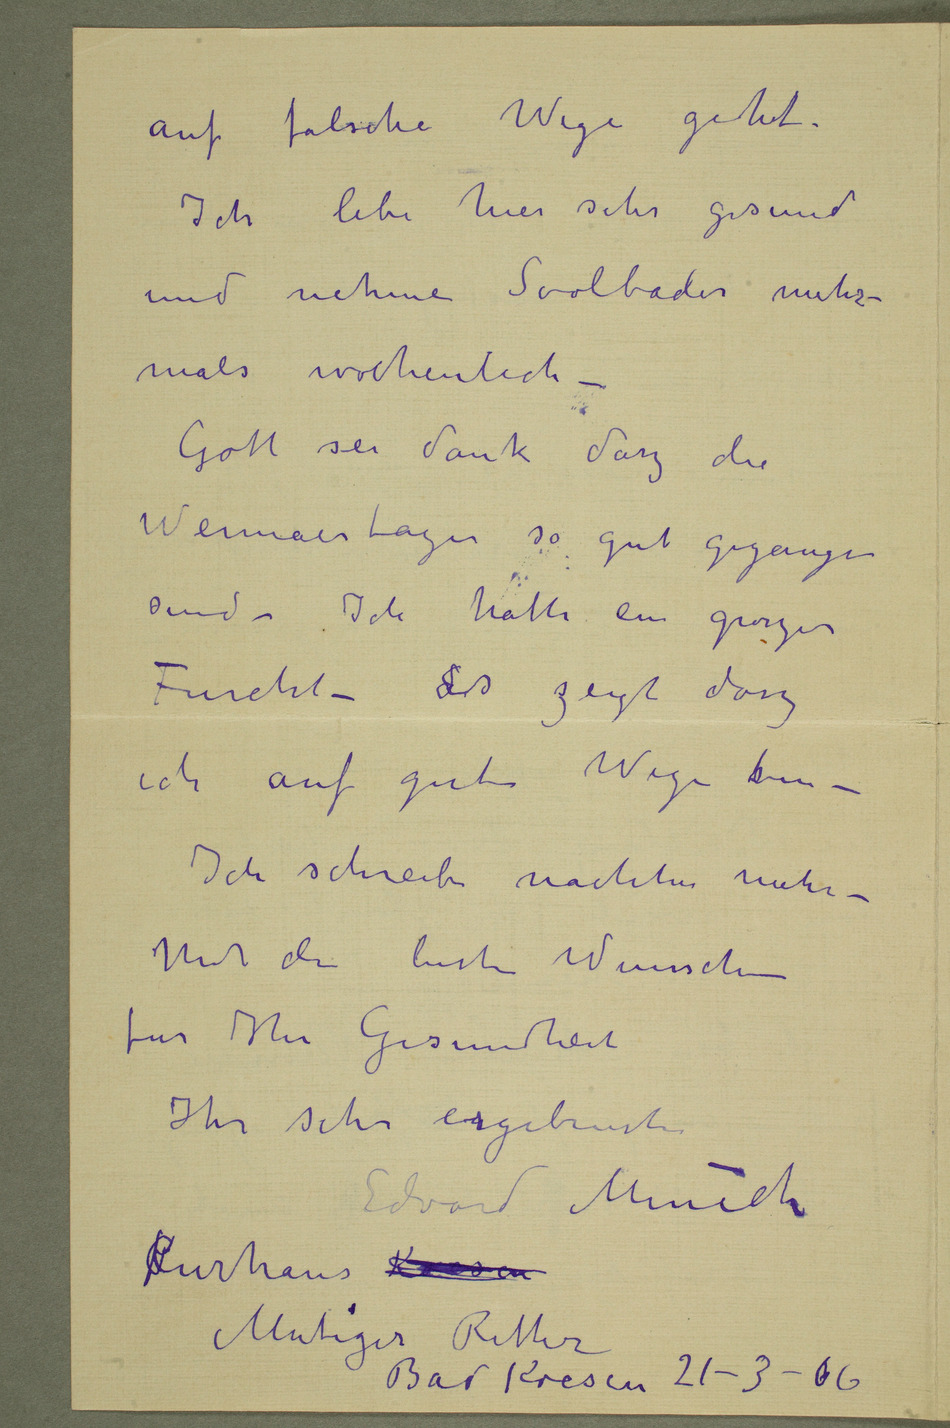 auf falsche Wege geht.
Ich lebe hier sehr gesund
und nehme Soolbader mehr-
mals wochentlich –
Gott sei dank dasz die
Weimaertagen so gut gegangen
sind – Ich hatte ein groszer
Furcht – Es zeigt dasz
ich auf guten Wege bin –
Ich schreibe nachher mehr –
Mit den besten Wunschen
fur Ihr Gesundheit
Ihr sehr ergebenste
Edvard Munch
Curhaus Koesen
Mutiger Ritter
Bad Koesen 21–3–06